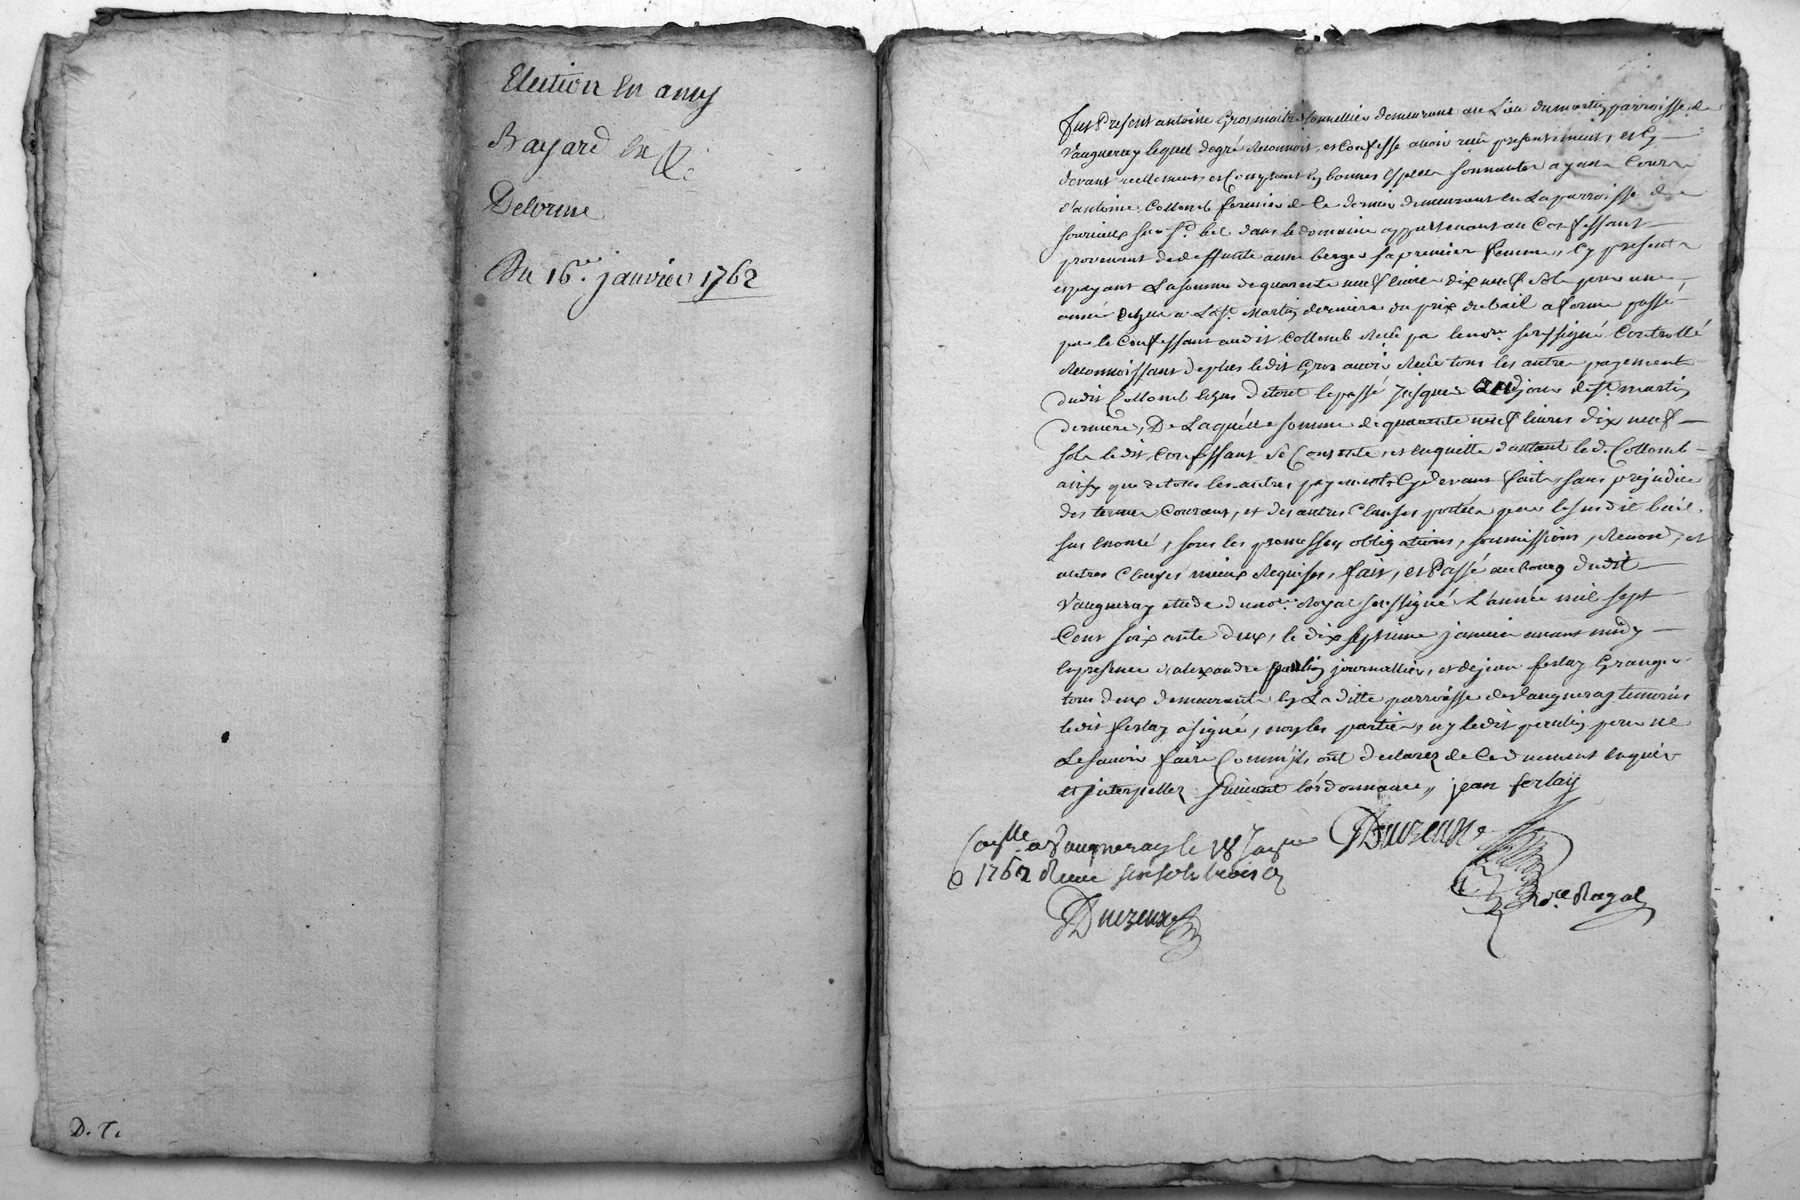 Election en amy
Bayard et
Delorme
Du 16.e janvier 1762
D. T.
fut Present antoine Gros maitre tonnellier demeurant au Lieu dumartin parroisse de
Vaugneray lequel degré Reconnoit, et Confesse avoir reçu presentement, et cy
devant reellement, et Comptant en bonnes Especes sonnantes ayant Cours
d'antoine Collomb fermier de Ce dernier demeurant en La parroisse de
sourcieux sur St. bel dans le domaine appartenant au Confessant
provenant de deffunte anne berger sa premier femme, Cy present
et payant La somme de quarente neuf livre dix neuf sols pour une
année echue a La St. Martin derniere du prix du bail a ferme passé
par le Confessant audit Collomb Reçu par le nore. soussigné Controllé
Reconnoissant deplus ledit Gros avoir Reçu tous les autre payement
dudit Collomb echus detout le passé jusques au jour de St. martin
derniere, De Laquelle somme de quarente neuf livres dix neuf
sols ledit Confessant se Contente, et en quitte d'autant le d. Collomb
ainsy que detous les autres payements Cydevant faits, sans prejudice
des terme Courant, et des autres Clauses portées par le susdit bail
sus enoncé, sous les promesses obligations, soumissions, Renond, et
autres Clauses mieux Requises, fait, et Passé au bourg dudit
Vaugneray etude du nore. Royal soussigné L'année mil sept
Cent soixante deux, le dix septieme janvier avant midy
En presence d'alexandre journallier, et de jean ferlay Granger
tous deux demeurants en La ditte parroisse de Vaugneray temoins
ledit ferlay a signé, non les parties, ny ledit pour ne
Le savoir faire Comm'ils ont declarez de Ce duement enquis
et interpellez suivant l'ordonnance, jean ferlay
Conllé a Vaugneray le 18 Janvier
1762 Recu six sols trois d
Duvzeux
Duvzeux
Nore. Royal